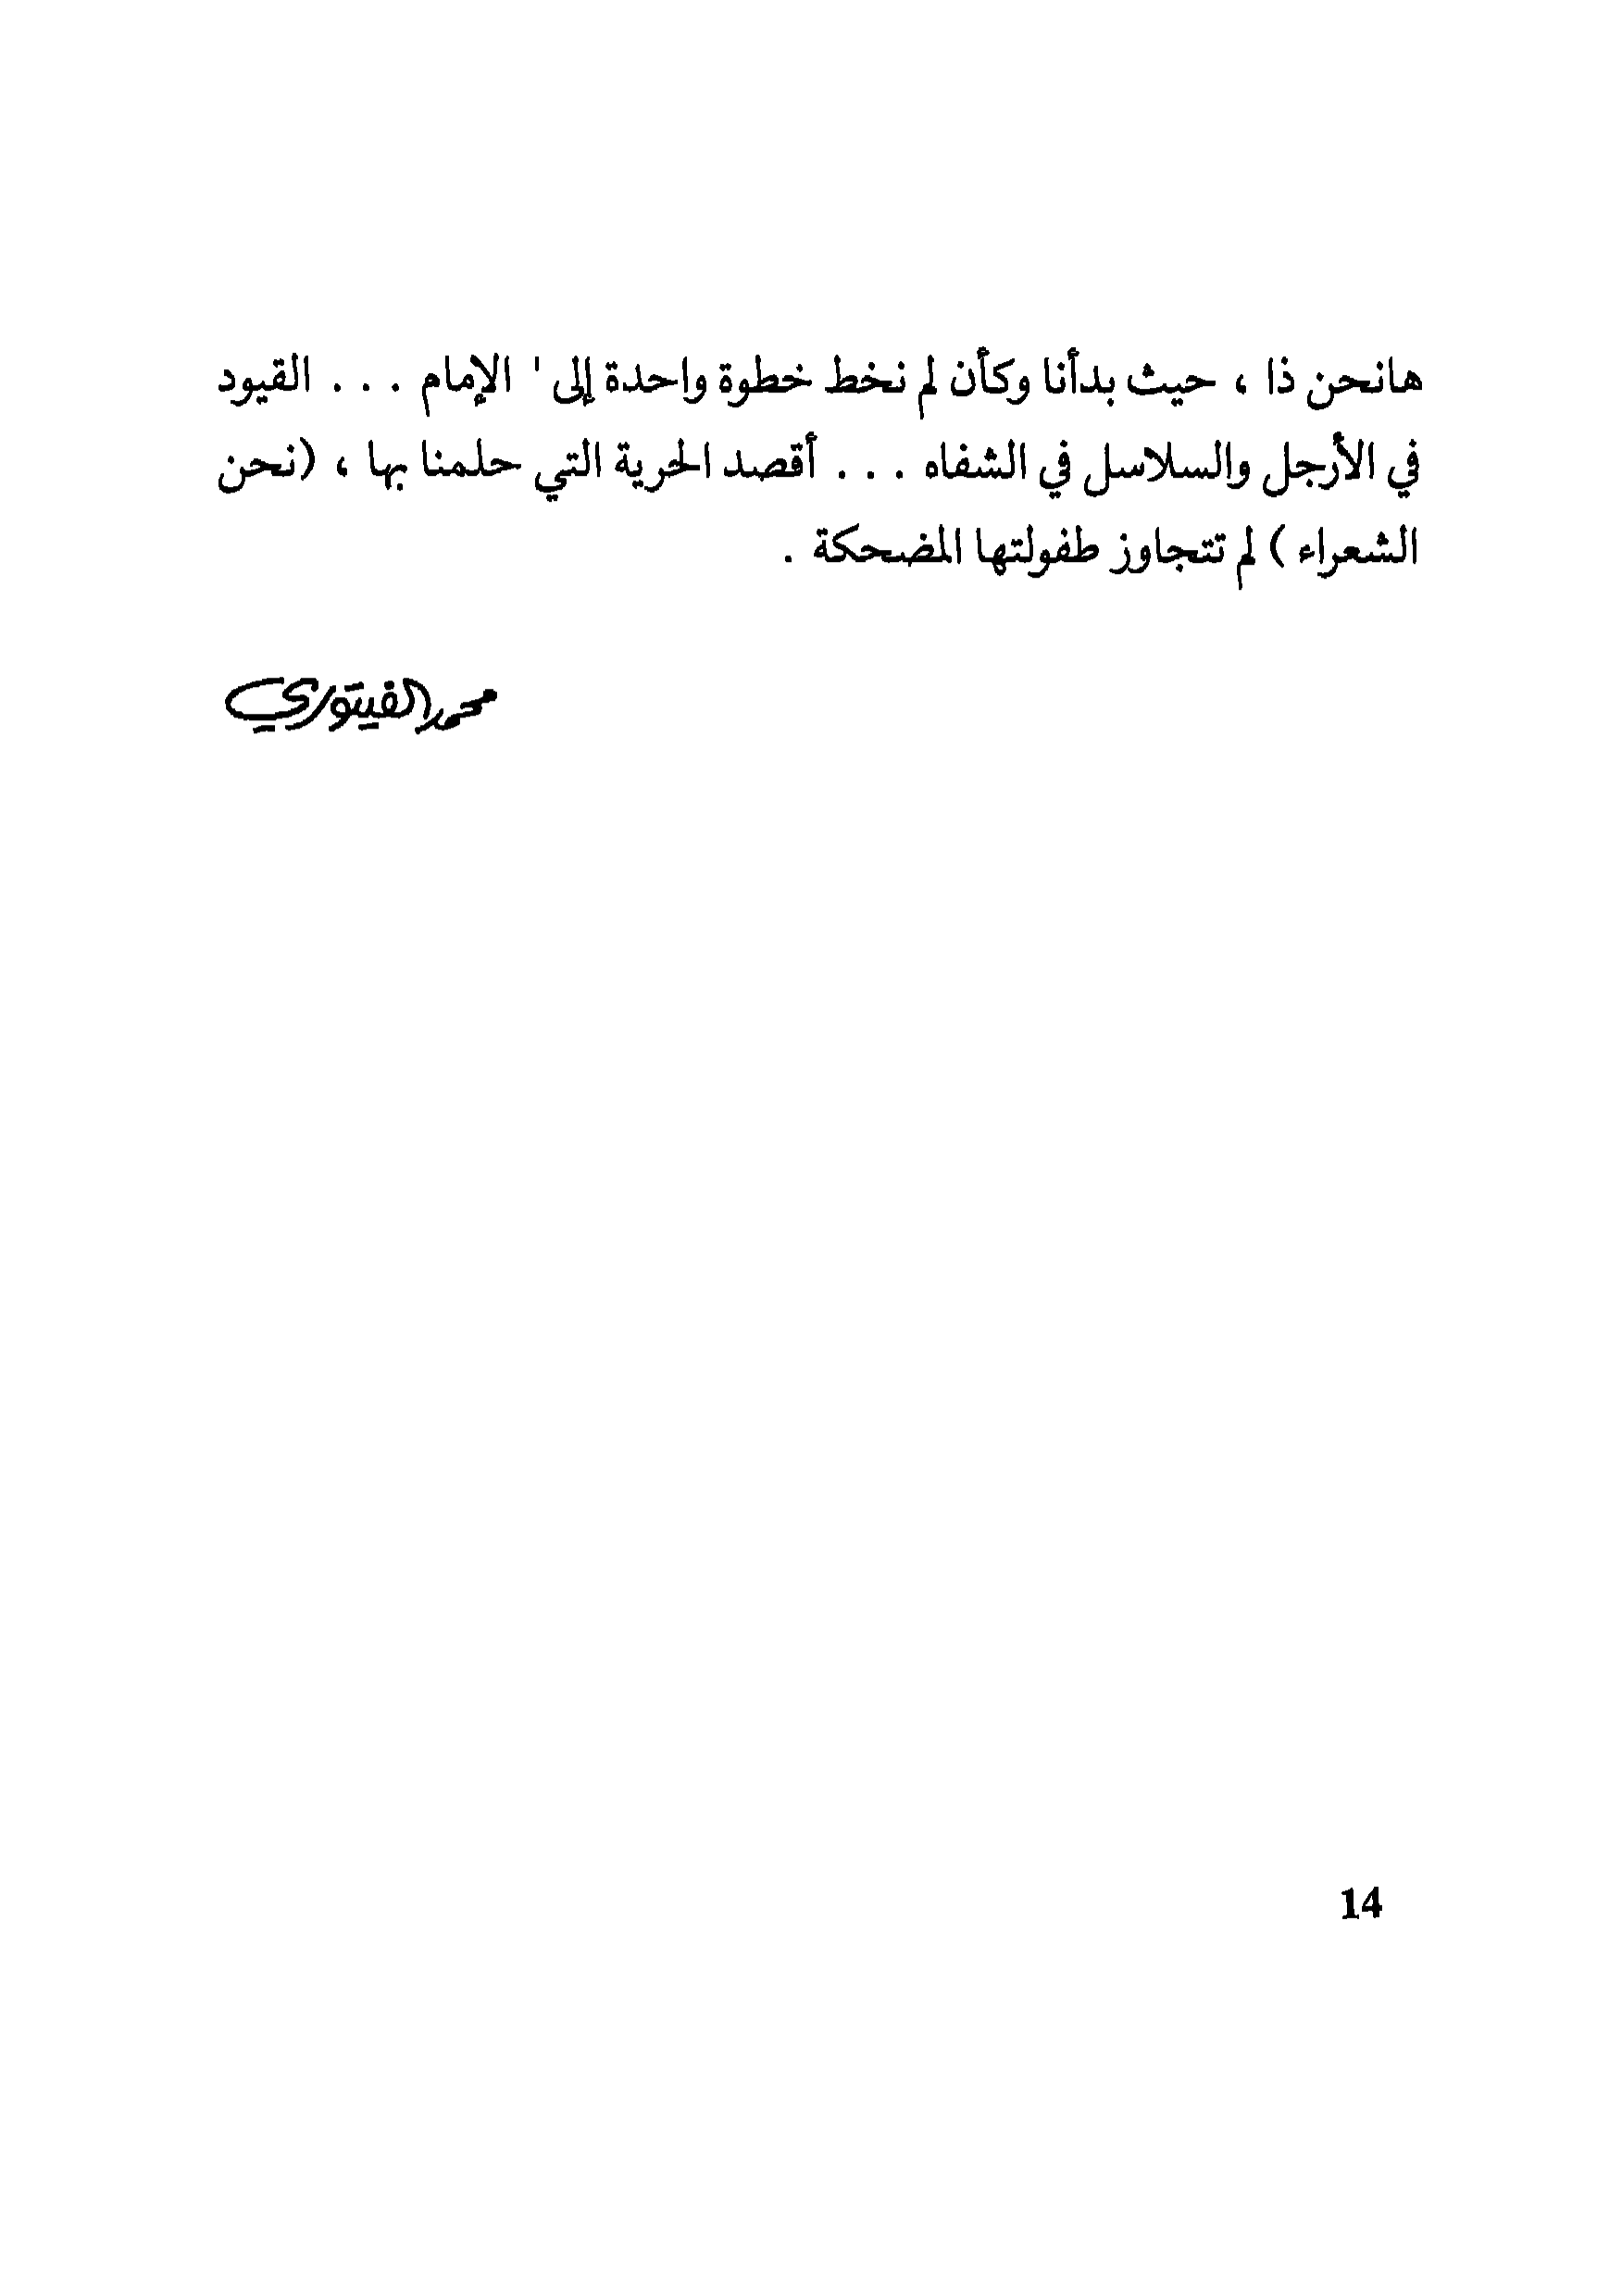 هانحن ذا ، حيث بدأنا وكأن لم نخط خطوة واحدة إلى ' الإمام . . . القيود
في الأرجل والسلاسل في الشفاه . . . أقصد الحرية التي حلمنا بها ، (نحن
الشعراء ) لم تتجاوز طفولتها المضحكة .
محمد الفيتوري
14